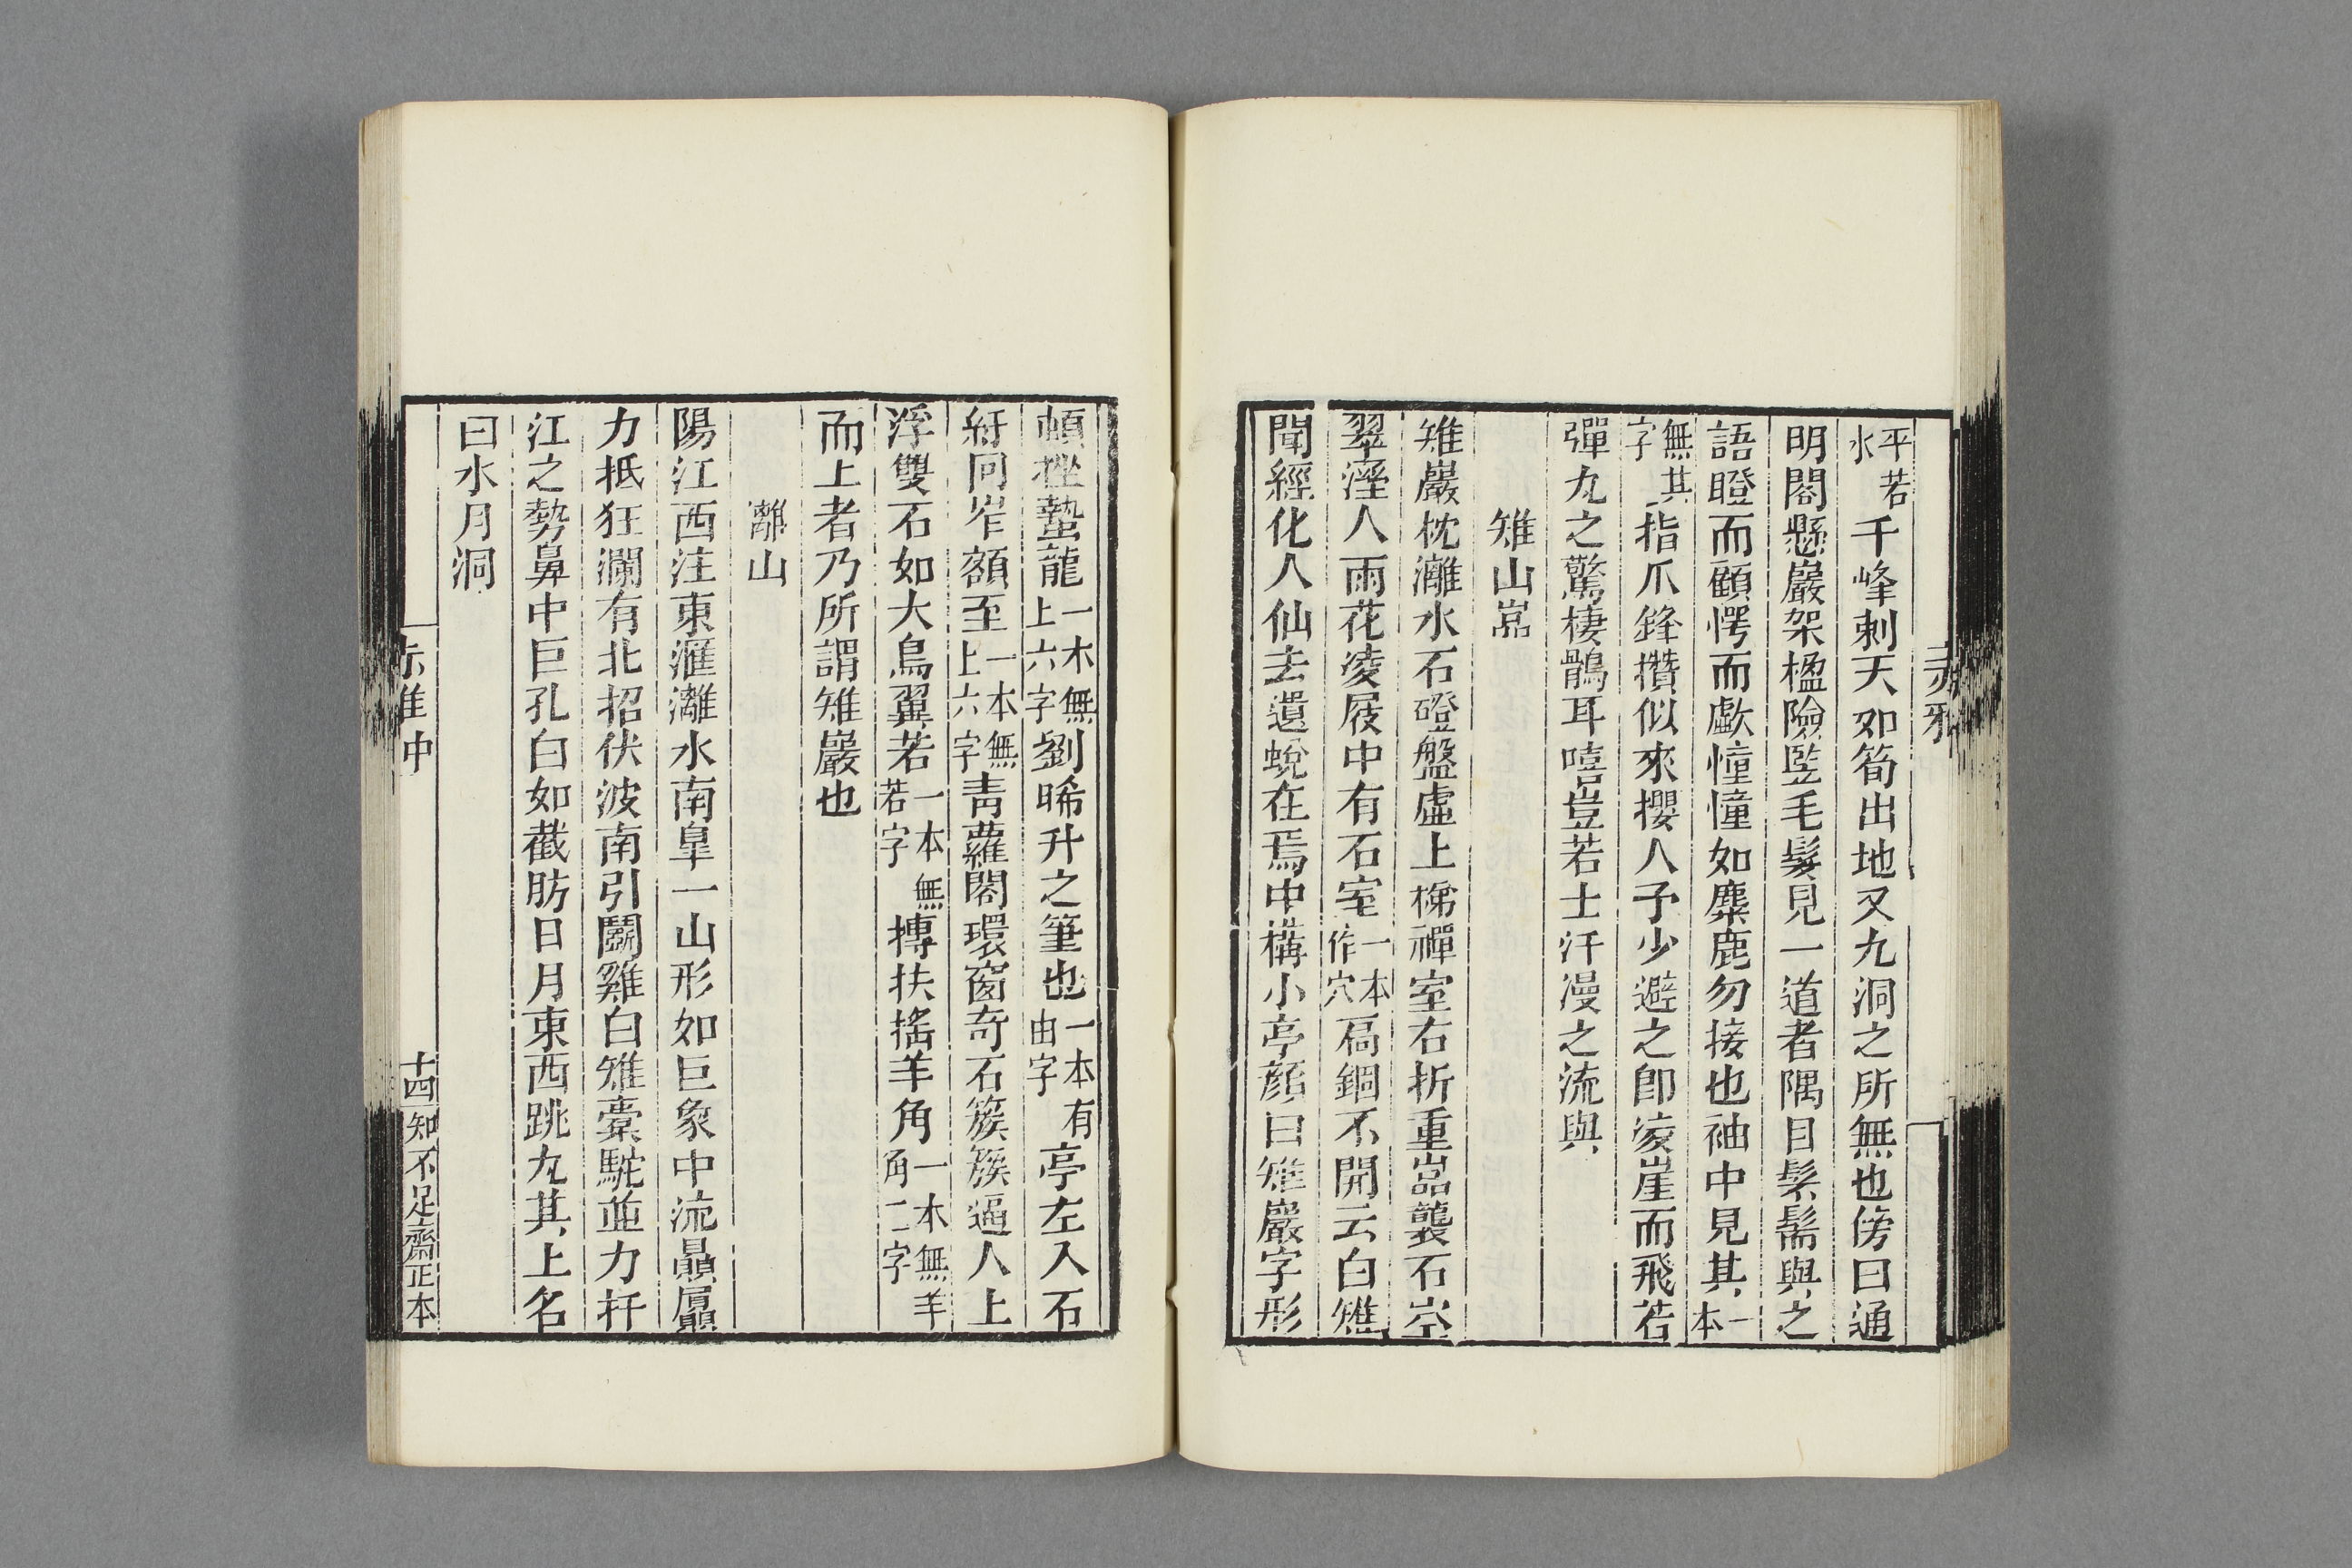 赤雅
平若水千峰刺天如筍出地又九洞之所無也傍曰通
明閣懸巖架楹險監毛髮見一道者隅目鬆鬅與之
語瞪而顧愕而歔憧憧如麋鹿勿接也袖中見其一本
無其字指爪鋒攢似來攖人予少避之卽凌崖而飛若
彈丸之驚棲鶻耳嘻豈若士汗漫之流與
雉山嵓
雉巖枕灕水石磴盤虛上梯禪室右折重嵓襲石空
翠溼人雨花凌屐中有石室一本作穴扃錮不開云白雉
聞經化人仙去遺蛻在焉中構小亭顏曰雉巖字形
頓挫蟄龍一本無上六字劉晞升之筆也一本有由字亭左入石
紆囘岝額至一本無上六字靑蘿閣環窗奇石簇簇逼人上
浮雙石如大鳥翼若一本無若字摶扶搖羊角一本無羊角二字
而上者乃所謂雉巖也
灕山
陽江西注東滙灕水南皐一山形如巨象中流贔屭
力抵狂瀾有北招伏波南引鬭雞白雉橐駝並力扞
江之勢鼻中巨孔白如截肪日月東西跳丸其上名
曰水月洞
赤雅中
十四
知不足齋正本